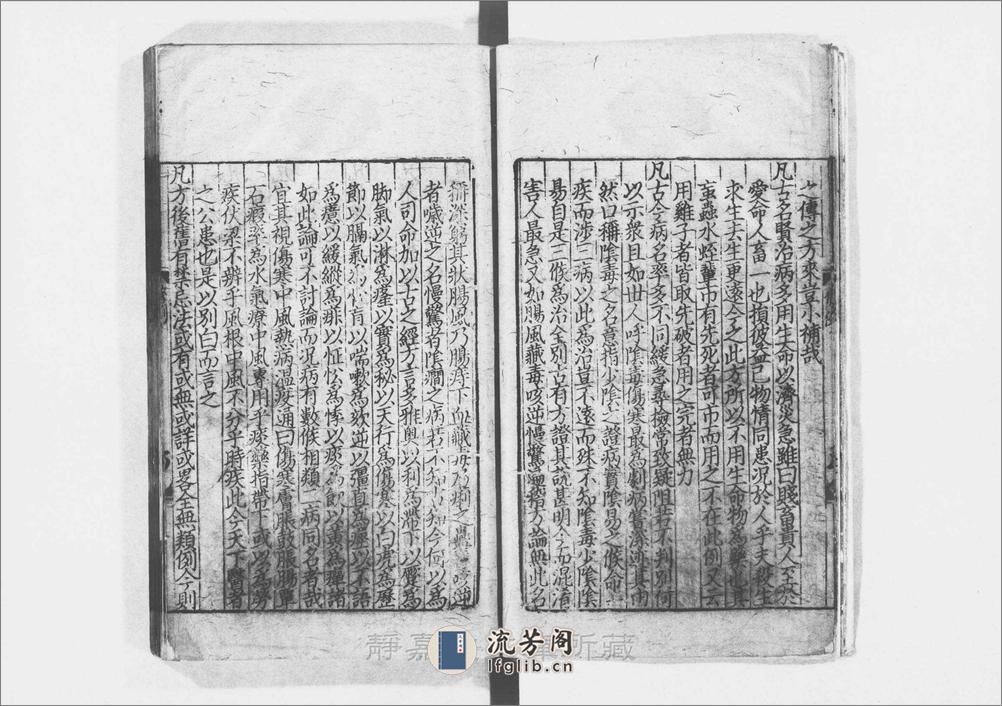 之傳之方來豈小補哉
凡古名賢治病多用生命以濟災急雖曰賤畜貴人至於
愛命人畜一也損彼益己物情同患况於人乎夫殺生
求生去生更逺今之此方所以不用生命物為藥也其
䖟蟲水蛭輩市有先死者可市而用之不在此例又云
用雞子者皆取先破者用之完者無力
凡古今病名率多不同緩急尋檢常致疑阻若不判别何
以示衆且如世人呼陰毒傷寒最為劇病嘗深迹其由
然口稱陰毒之名意指少陰之證病實陰易之候命一
疾而涉三病以此為治豈不逺而殊不知陰毒少陰陰
易自是三候為治全别古有方證其説甚明今而混淆
害人最急又如腸風藏毒咳逆慢驚遍稽方論無此名
深窮其狀腸風乃腸痔下血藏毒乃痢之
者噦逆之名慢驚者隂癎之病若不知古知今何以為
人司命加以古之經方言多雅奥以利為滯下以蹷為
脚氣以淋為癃以實為秘以天行為傷寒以白虎為歴
節以膈氣為膏肓以喘嗽為欬逆以彊直為痙以不語
為癔以緩縱為痱以怔忪為悸以痰為飲以黄為癉諸
如此論可不討論而况病有數候相類二病同名者哉
宜其視傷寒中風熱病温疫通曰傷寒膚脹鼓脹腸覃
石瘕率為水氣療中風專用乎痰藥指帶下或以為勞
疾伏梁不辨乎風根中風不分乎時疾此今天下醫者
之公患也是以别白而言之
凡方後舊有禁忌法或有或無或詳或畧全無類例今則
靜嘉堂 所藏
流芳阁
lfglib.cn